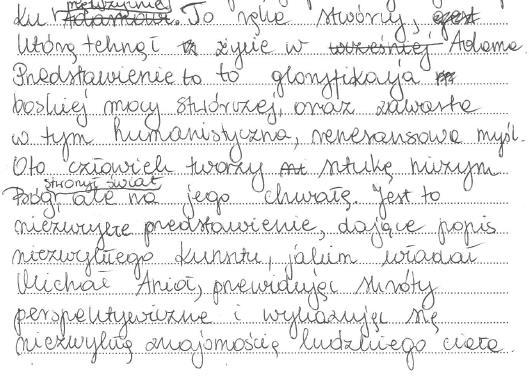 ku Adamowi. To ręka stwórcy, gest
którą tchnął życie w wcześniej Adama.
Przedstawienie to to gloryfikacja
boskiej mocy stwórczej, oraz zawarta
w tym humanistyczna, renesansowa myśl.
Oto człowiek tworzy sztukę niczym
stworzył świat
Bóg, ale na jego chwałę. Jest to
niezwykłe przedstawienie, dające popis
niezwykłego kunsztu, jakim władał
Michał Anioł, przewidując skróty
perspektywiczne i wykazując się
niezwykłą znajomością ludzkiego ciała.